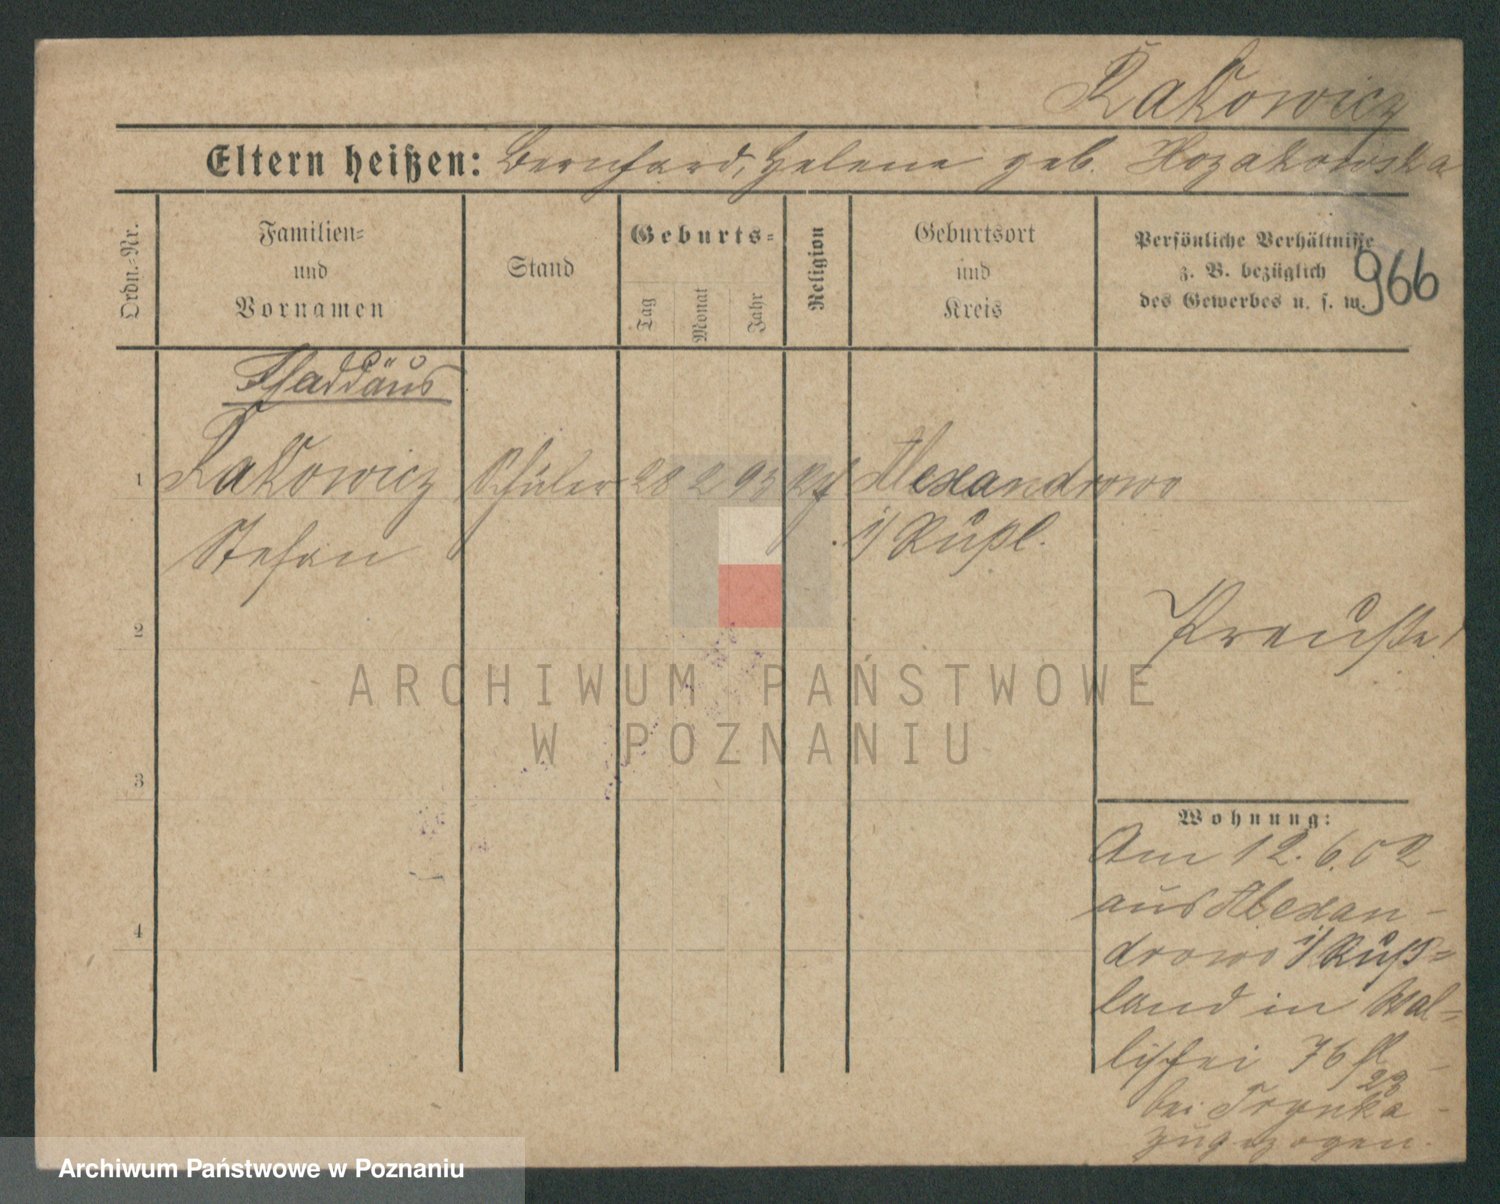 Rakowicz
Eltern heißen: Bernhard, Helene geb. Kozakowska
Ordn.-Nr.
Familien-
und
Vornamen
Stand
Geburts-
Tag
Monat
Jahr
Religion
Geburtsort
und
Kreis
Persönliche Verhältnisse
z. B. bezüglich
des Gewerbes u. s. w.
966
Thaddäus
1 Rakowicz Schüler 28 2 93 Alexandrowo
Stefan i/ Rußl.
2
Preuße!
3
4
Wohnung:
Am 12.6.02
aus Alexan-
drowo i/ Ruß-
land in Wal-
lischei 76
bei Trynka
zugezogen.
ARCHIWUM PAŃSTWOWE
W POZNANIU
Archiwum Państwowe w Poznaniu